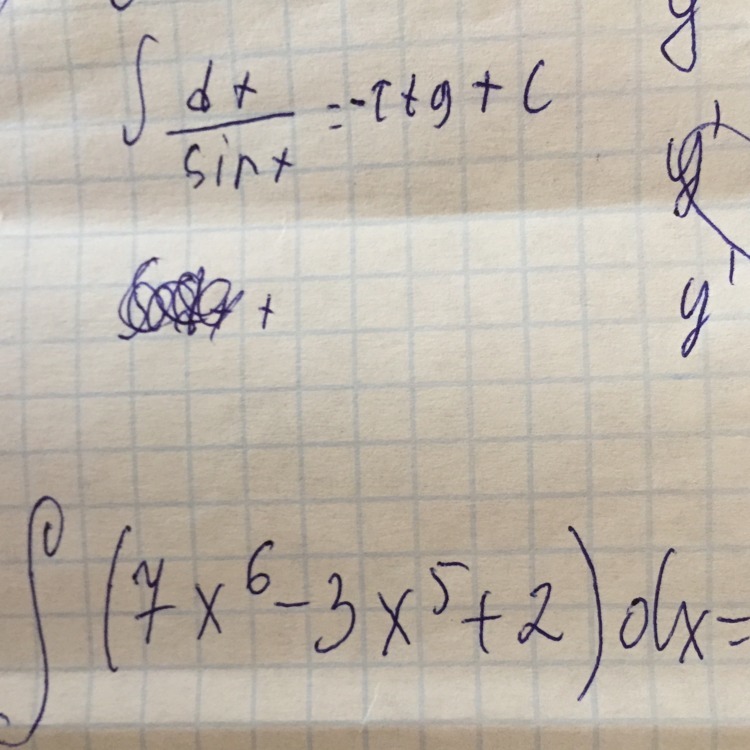 ∫ dx / sin x = -ctg + C
y
y'
y'
∫ (7x⁶ - 3x⁵ + 2) dx =